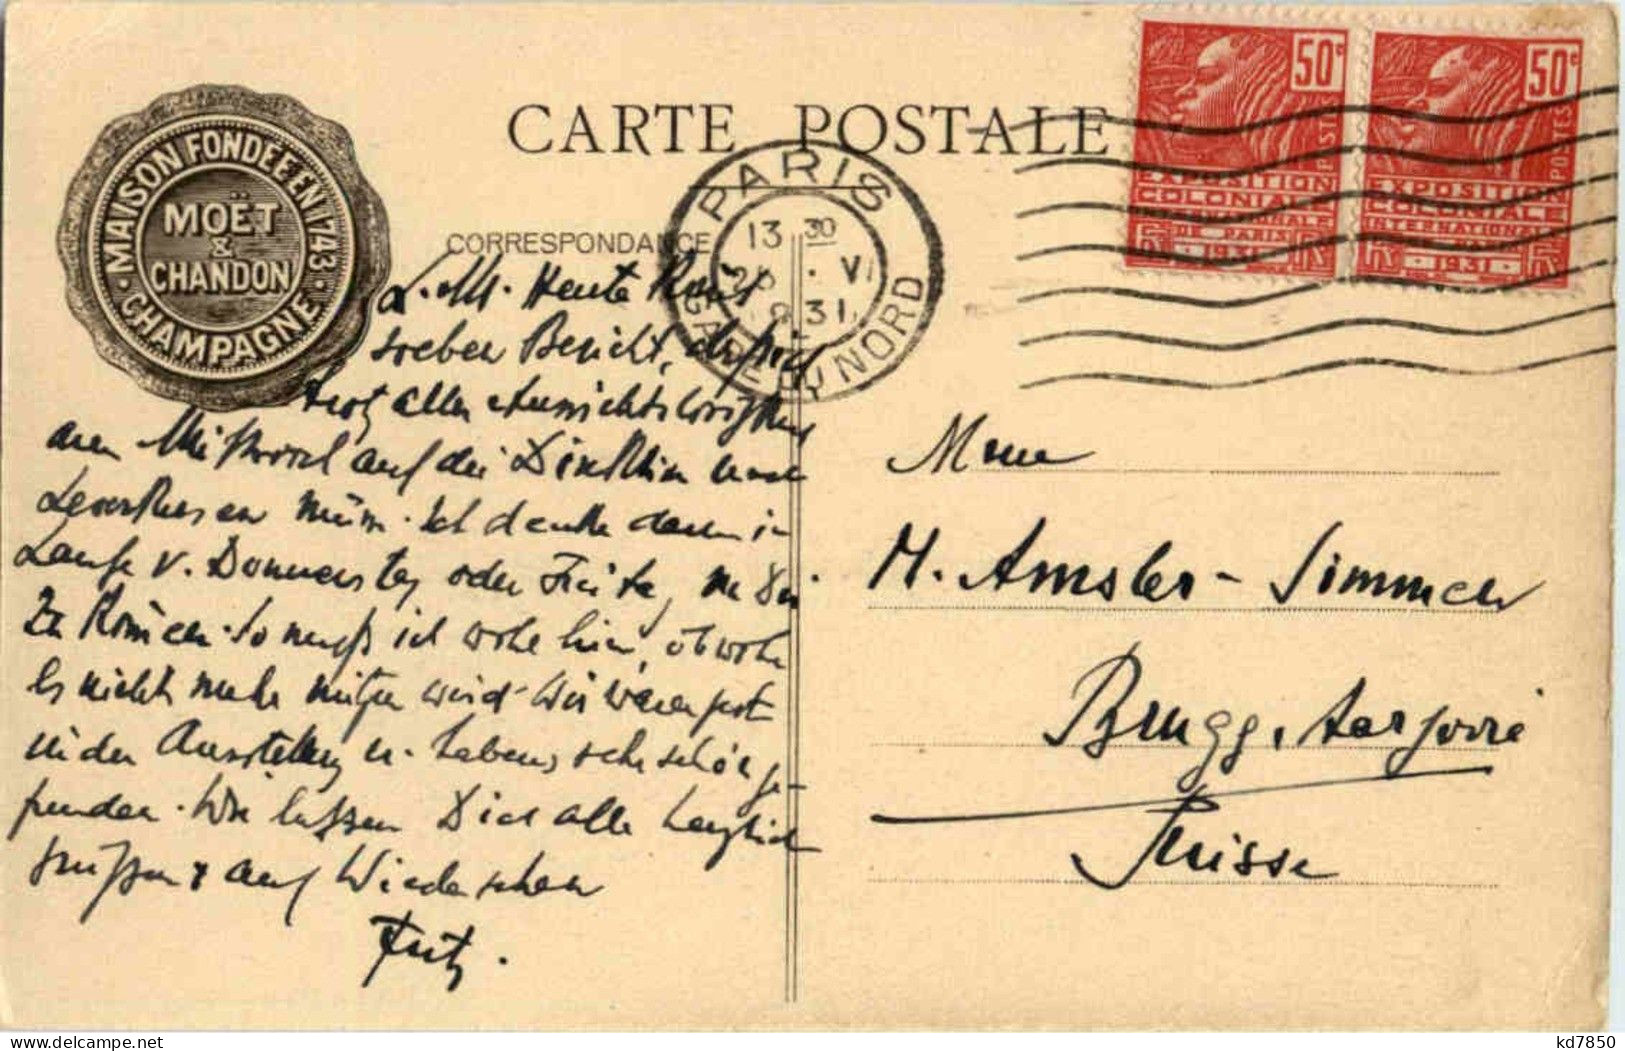 CARTE POSTALE
MAISON FONDÉE EN 1743
MOËT
&
CHANDON
CHAMPAGNE
CORRESPONDANCE
PARIS
13 30
VI
31
GARE DU NORD
50c
POSTES
EXPOSITION
COLONIALE
INTERNATIONALE
DE PARIS
1931
50c
POSTES
EXPOSITION
COLONIALE
INTERNATIONALE
DE PARIS
1931
L. M. Heute
soeben Bericht,
trotz aller Aussichtslosigkeit
auf die
Leverkusen nimm. Ich denke dann im
Laufe v. Donnerstag oder
zu können. So muss ich wohl hin, obwohl
es nicht mehr nützen wird. Wir waren
in der Ausstellung u. haben es sehr schön ge-
funden. Wir lassen Dich alle herzlich
grüssen & auf Wiedersehen
Fritz.
Mme
H. Amsler-Simmen
Brugg, Aargovie
Suisse
kd7850